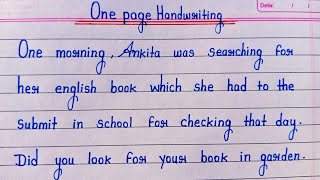 One page Handwriting
Date: / /
One morning, Ankita was searching for
her english book which she had to the
submit in school for checking that day.
Did you look for your book in garden.